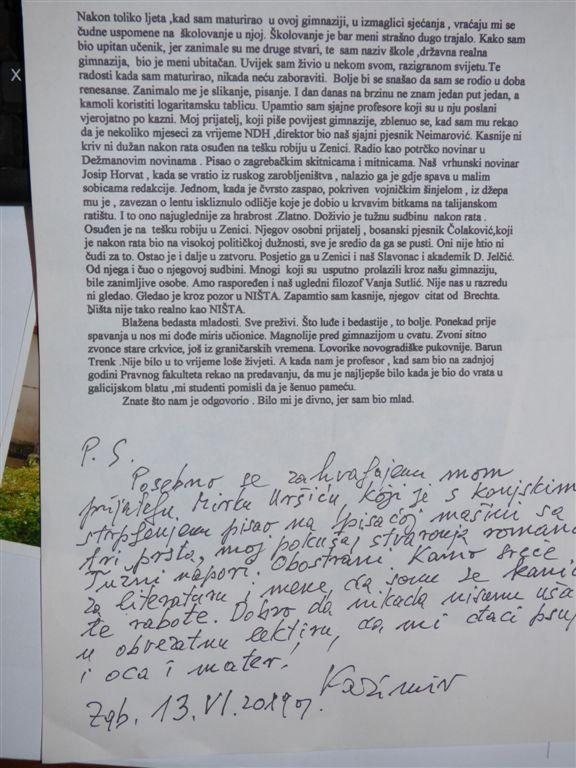 Nakon toliko ljeta ,kad sam maturirao u ovoj gimnaziji, u izmaglici sjećanja , vraćaju mi se
čudne uspomene na školovanje u njoj. Školovanje je bar meni strašno dugo trajalo. Kako sam
bio upitan učenik, jer zanimale su me druge stvari, te sam naziv škole ,državna realna
gimnazija, bio je meni ubitačan. Uvijek sam živio u nekom svom, razigranom svijetu.Te
radosti kada sam maturirao, nikada neću zaboraviti. Bolje bi se snašao da sam se rodio u doba
renesanse. Zanimalo me je slikanje, pisanje. I dan danas na brzinu ne znam jedan put jedan, a
kamoli koristiti logaritamsku tablicu. Upamtio sam sjajne profesore koji su u nju poslani
vjerojatno po kazni. Moj prijatelj, koji piše povijest gimnazije, zblenuo se, kad sam mu rekao
da je nekoliko mjeseci za vrijeme NDH ,direktor bio naš sjajni pjesnik Neimarović. Kasnije ni
kriv ni dužan nakon rata osuđen na tešku robiju u Zenici. Radio kao potrčko novinar u
Dežmanovim novinama . Pisao o zagrebačkim skitnicama i mitnicama. Naš vrhunski novinar
Josip Horvat , kada se vratio iz ruskog zarobljeništva , nalazio ga je gdje spava u malim
sobicama redakcije. Jednom, kada je čvrsto zaspao, pokriven vojničkim šinjelom , iz džepa
mu je , zavezan o lentu iskliznulo odličje koje je dobio u krvavim bitkama na talijanskom
ratištu. I to ono najuglednije za hrabrost .Zlatno. Doživio je tužnu sudbinu nakon rata .
Osuđen je na tešku robiju u Zenici. Njegov osobni prijatelj , bosanski pjesnik Čolaković,koji
je nakon rata bio na visokoj političkoj dužnosti, sve je sredio da ga se pusti. Oni nije htio ni
čudi za to. Ostao je i dalje u zatvoru. Posjetio ga u Zenici i naš Slavonac i akademik D. Jelčić.
Od njega i čuo o njegovoj sudbini. Mnogi koji su usputno prolazili kroz našu gimnaziju,
bile zanimljive osobe. Amo raspoređen i naš ugledni filozof Vanja Sutlić. Nije nas u razredu
ni gledao. Gledao je kroz pozor u NIŠTA. Zapamtio sam kasnije, njegov citat od Brechta.
Ništa nije tako realno kao NIŠTA.
Blažena bedasta mladosti. Sve preživi. Što luđe i bedastije , to bolje. Ponekad prije
spavanja u nos mi dođe miris učionice. Magnolije pred gimnazijom u cvatu. Zvoni sitno
zvonce stare crkvice, još iz graničarskih vremena. Lovorike novogradiške pukovnije. Barun
Trenk .Nije bilo u to vrijeme loše živjeti. A kada nam je profesor , kad sam bio na zadnjoj
godini Pravnog fakulteta rekao na predavanju, da mu je najljepše bilo kada je bio do vrata u
galicijskom blatu ,mi studenti pomisli da je šenuo pameću.
Znate što nam je odgovorio . Bilo mi je divno, jer sam bio mlad.
P. S.
Posebno se zahvaljujem mom
prijatelju Mirku Uršiću koji je s konjskim
strpljenjem pisao na pisaćoj mašini sa
tri prsta, moj pokušaj stvaranja romana
Tužni napori. Obostrani. Kamo sreće
za literaturu i mene, da sam se kanio
te rabote. Dobro da nikada nisam uša
u obveznu lektiru, da mi đaci psuj
i oca i mater!
Zgb. 13. VI. 2019 g. Kazimir